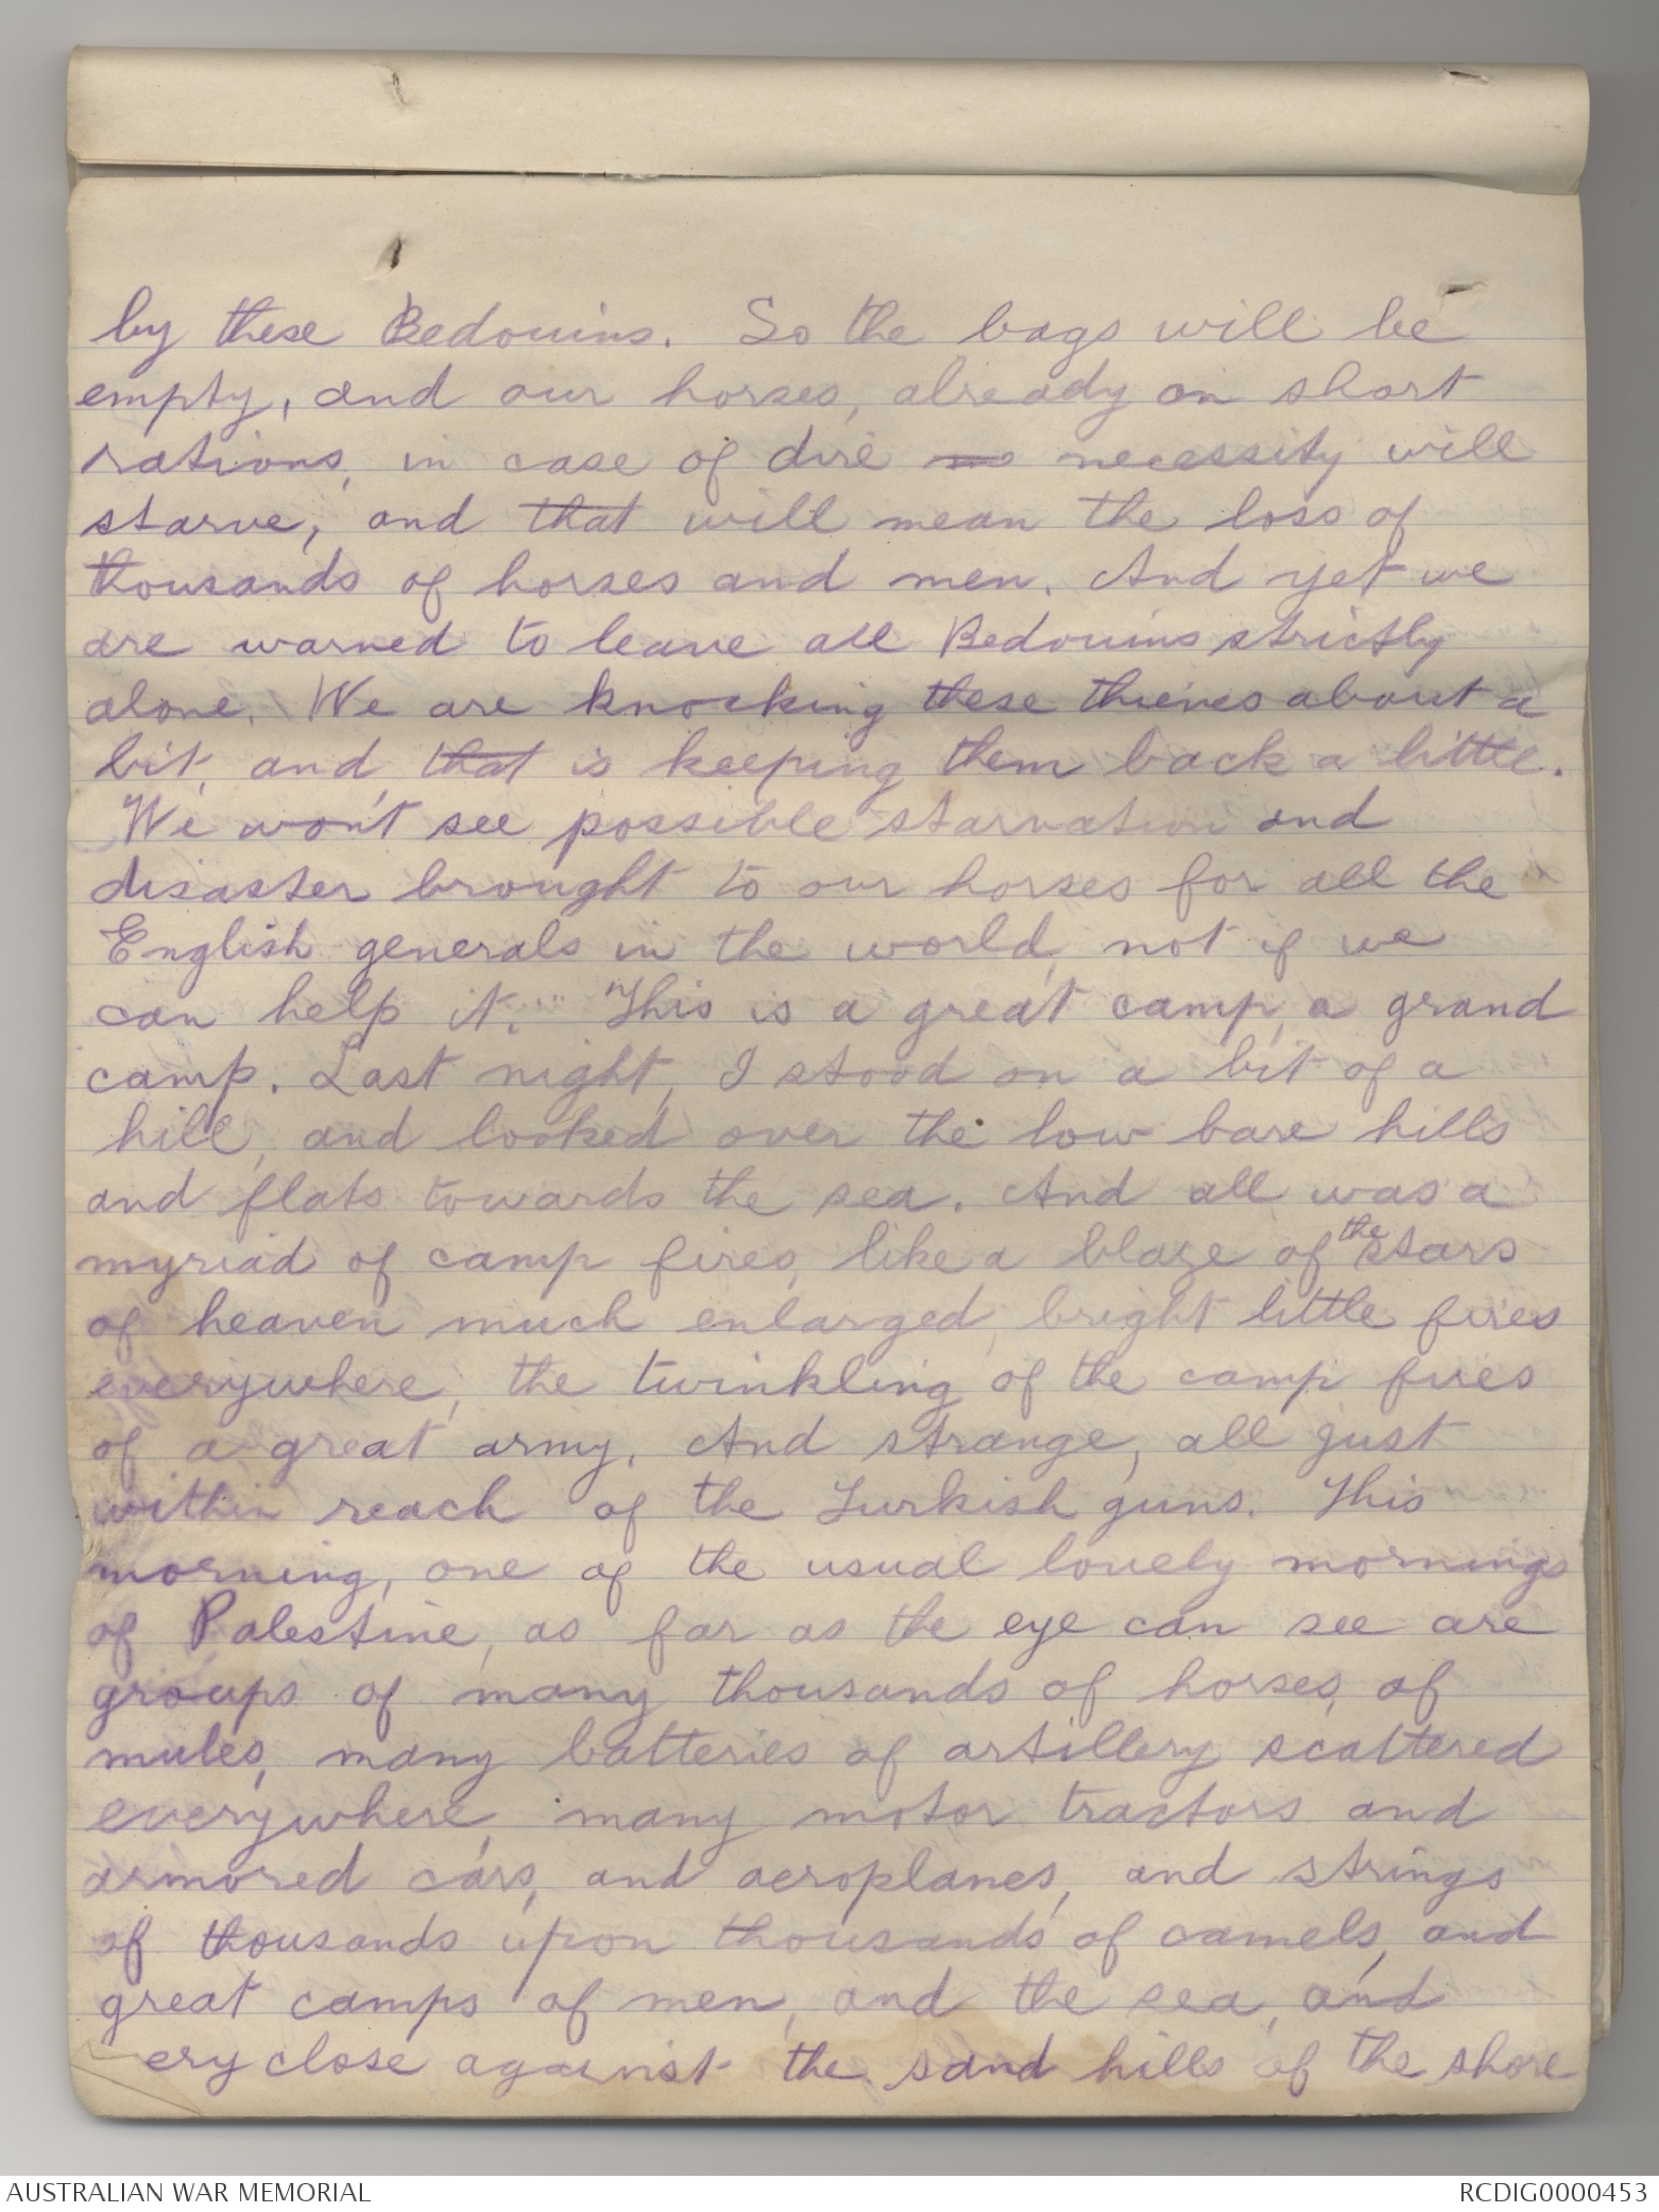 by these Bedouins. So the bags will be
empty, and our horses, already on short
rations, in case of dire necessity will
starve, and that will mean the loss of
thousands of horses and men. And yet we
are warned to leave all Bedouins strictly
alone. We are knocking these thieves about a
bit, and, that is keeping them back a little.
We won't see possible starvation and
disaster brought to our horses for all the
English generals in the world, not if we
can help it. This is a great camp, a grand
camp. Last night, I stood on a bit of a
hill, and looked over the low bare hills
and flats towards the sea. And all was a
myriad of camp fires, like a blaze of the stars
of heaven much enlarged, bright little fires
everywhere, the twinkling of the camp fires
of a great army. And strange, all just
within reach of the Turkish guns. This
morning, one of the usual lovely mornings
of Palestine, as far as the eye can see are
groups of many thousands of horses, of
mules, many batteries of artillery scattered
everywhere, many motor tractors and
armored cars, and aeroplanes, and strings
of thousands upon thousands of camels, and
great camps of men, and the sea, and
ery close against the sand hills of the shore
AUSTRALIAN WAR MEMORIAL
RCDIG0000453